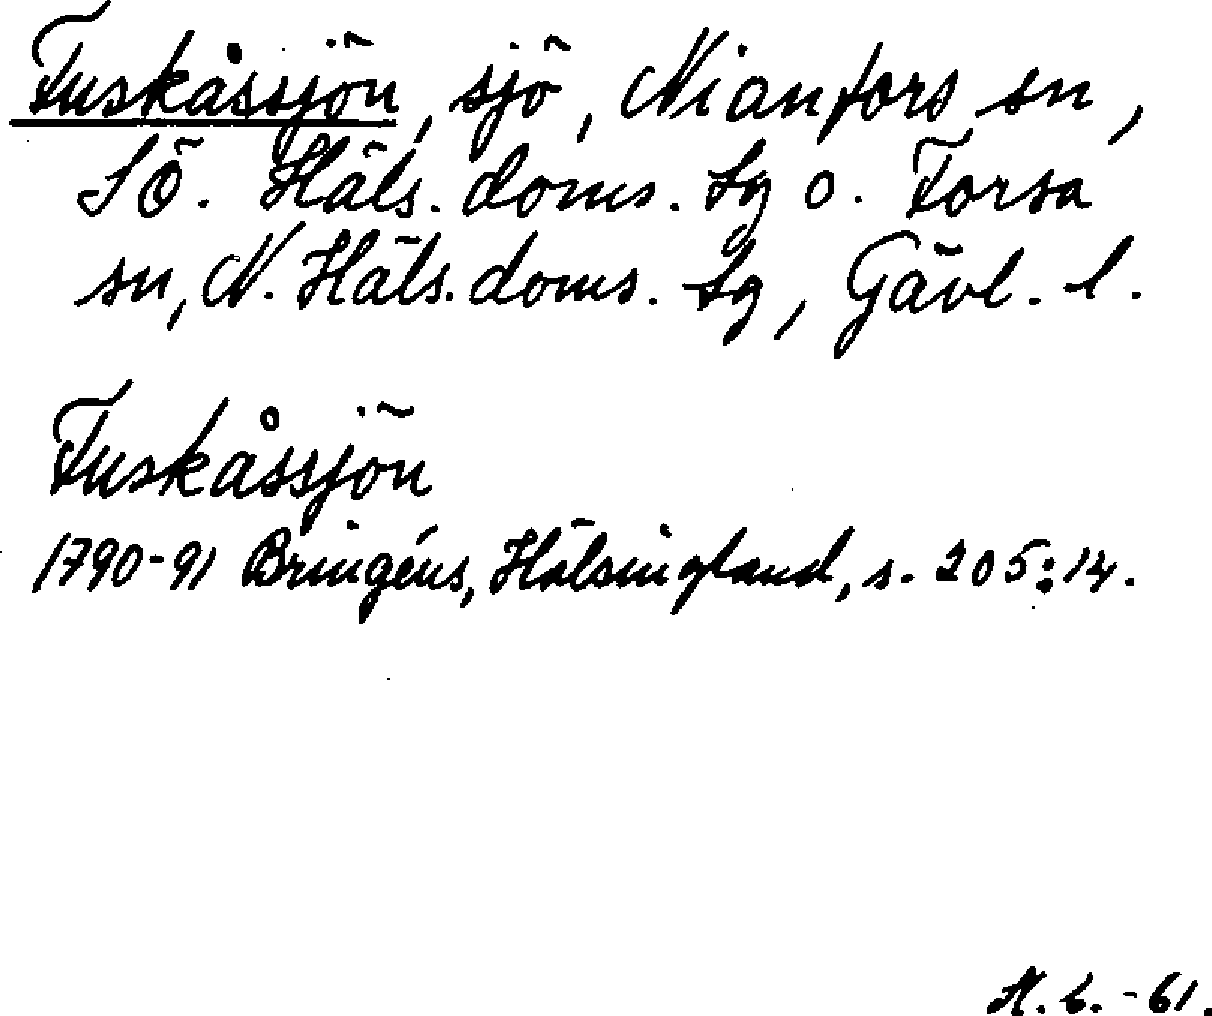 Fuskåssjön, sjö, Nianfors sn,
SÖ. Häls. doms. tg o. Forsa
sn, N. Häls. doms. tg, Gävl. l.
Fuskåssjön
1790-91 Bringéus, Hälsingland, s. 205:14.
-61.